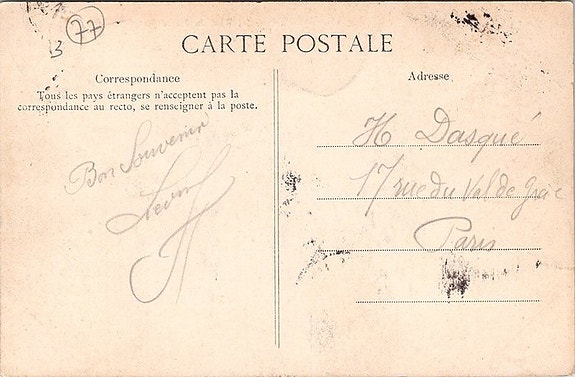 B
77
CARTE POSTALE
Correspondance
Tous les pays étrangers n'acceptent pas la
correspondance au recto, se renseigner à la poste.
Bon Souvenir
Adresse
H Dasqué
17 rue du Val de Grâce
Paris